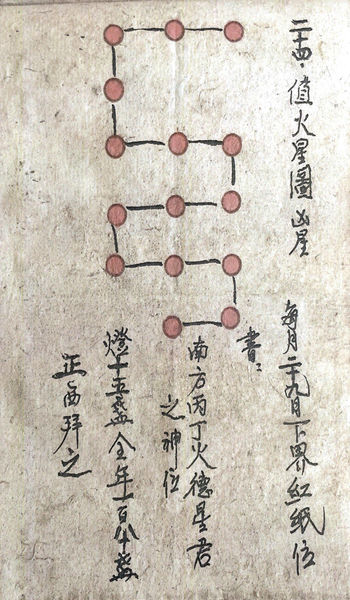 二十四·值火星圖凶星
每月二十九日下界紅紙位
書:
南方丙丁火德星君
之神位
燈十五盞全年一百八十盞
正西拜之